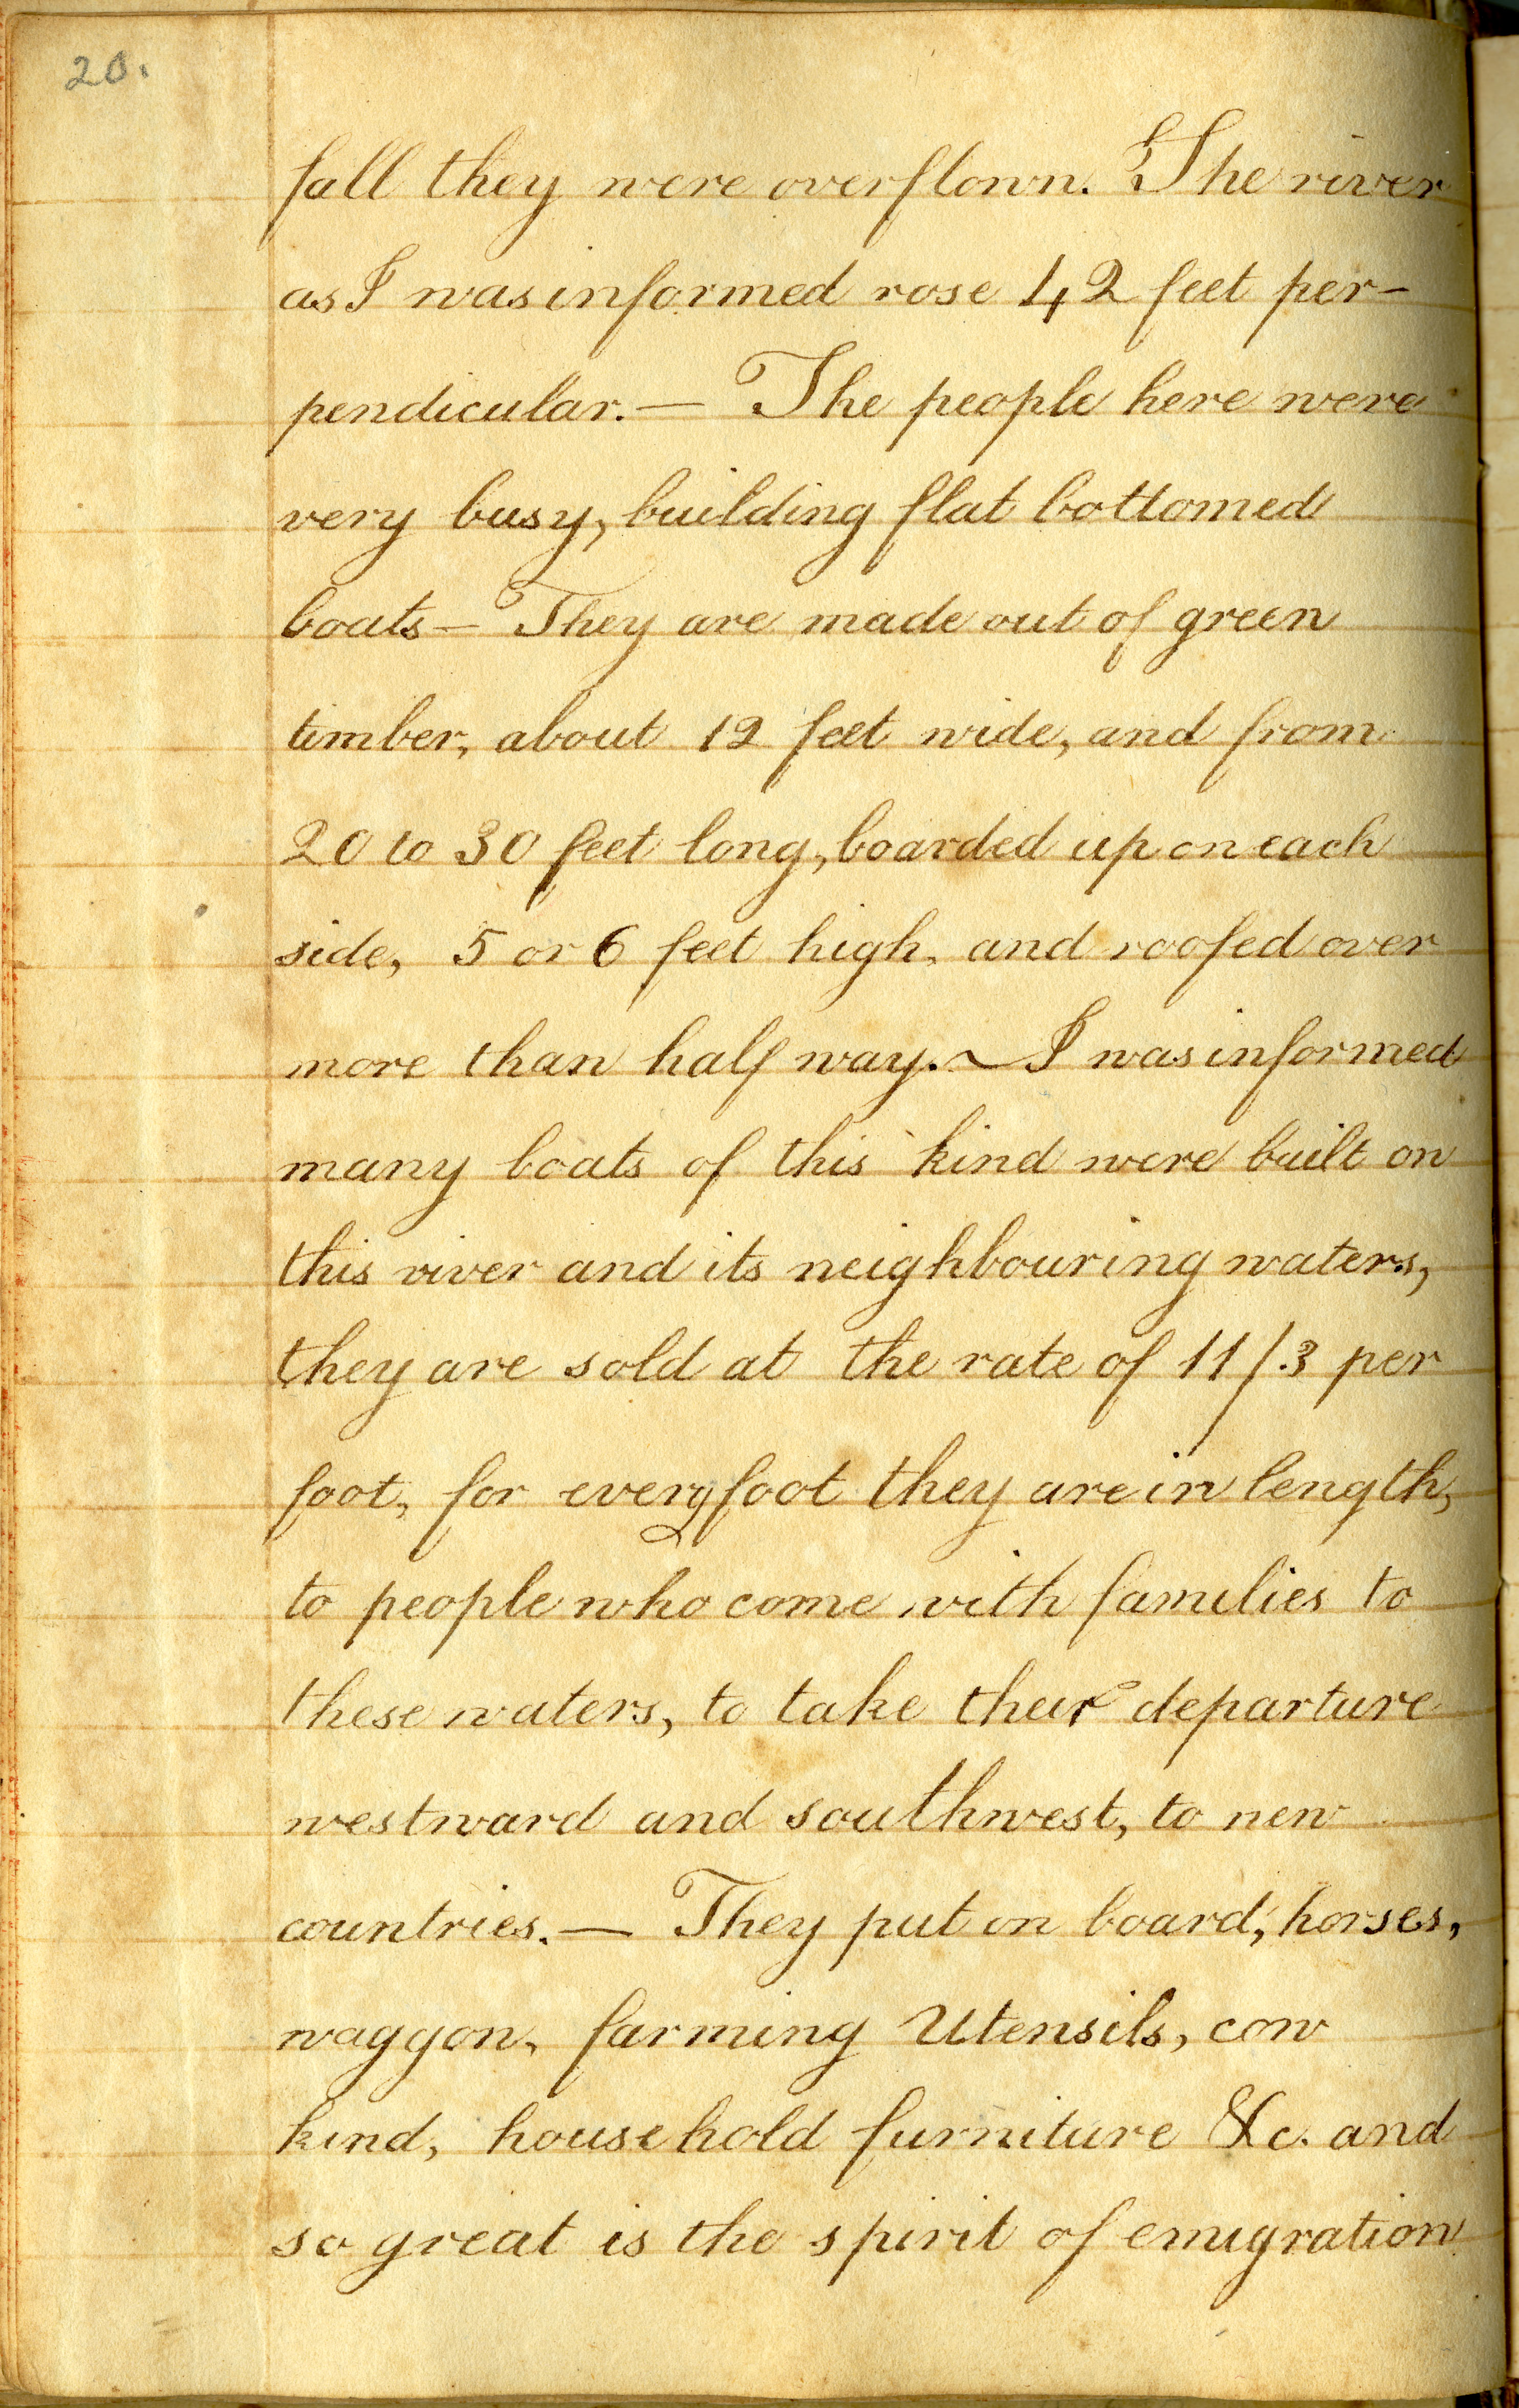 20.
fall they were overflown. The river
as I was informed rose 42 feet per-
pendicular.— The people here were
very busy, building flat bottomed
boats— They are made out of green
timber, about 12 feet wide, and from
20 to 30 feet long, boarded up on each
side, 5 or 6 feet high, and roofed over
more than half way.~ I was informed
many boats of this kind were built on
this river and its neighbouring waters,
they are sold at the rate of 11/3 per
foot, for every foot they are in length,
to people who come with families to
these waters, to take their departure
westward and southwest, to new
countries.— They put on board, horses,
waggon, farming Utensils, cow
kind, household furniture &c. and
so great is the spirit of emigration